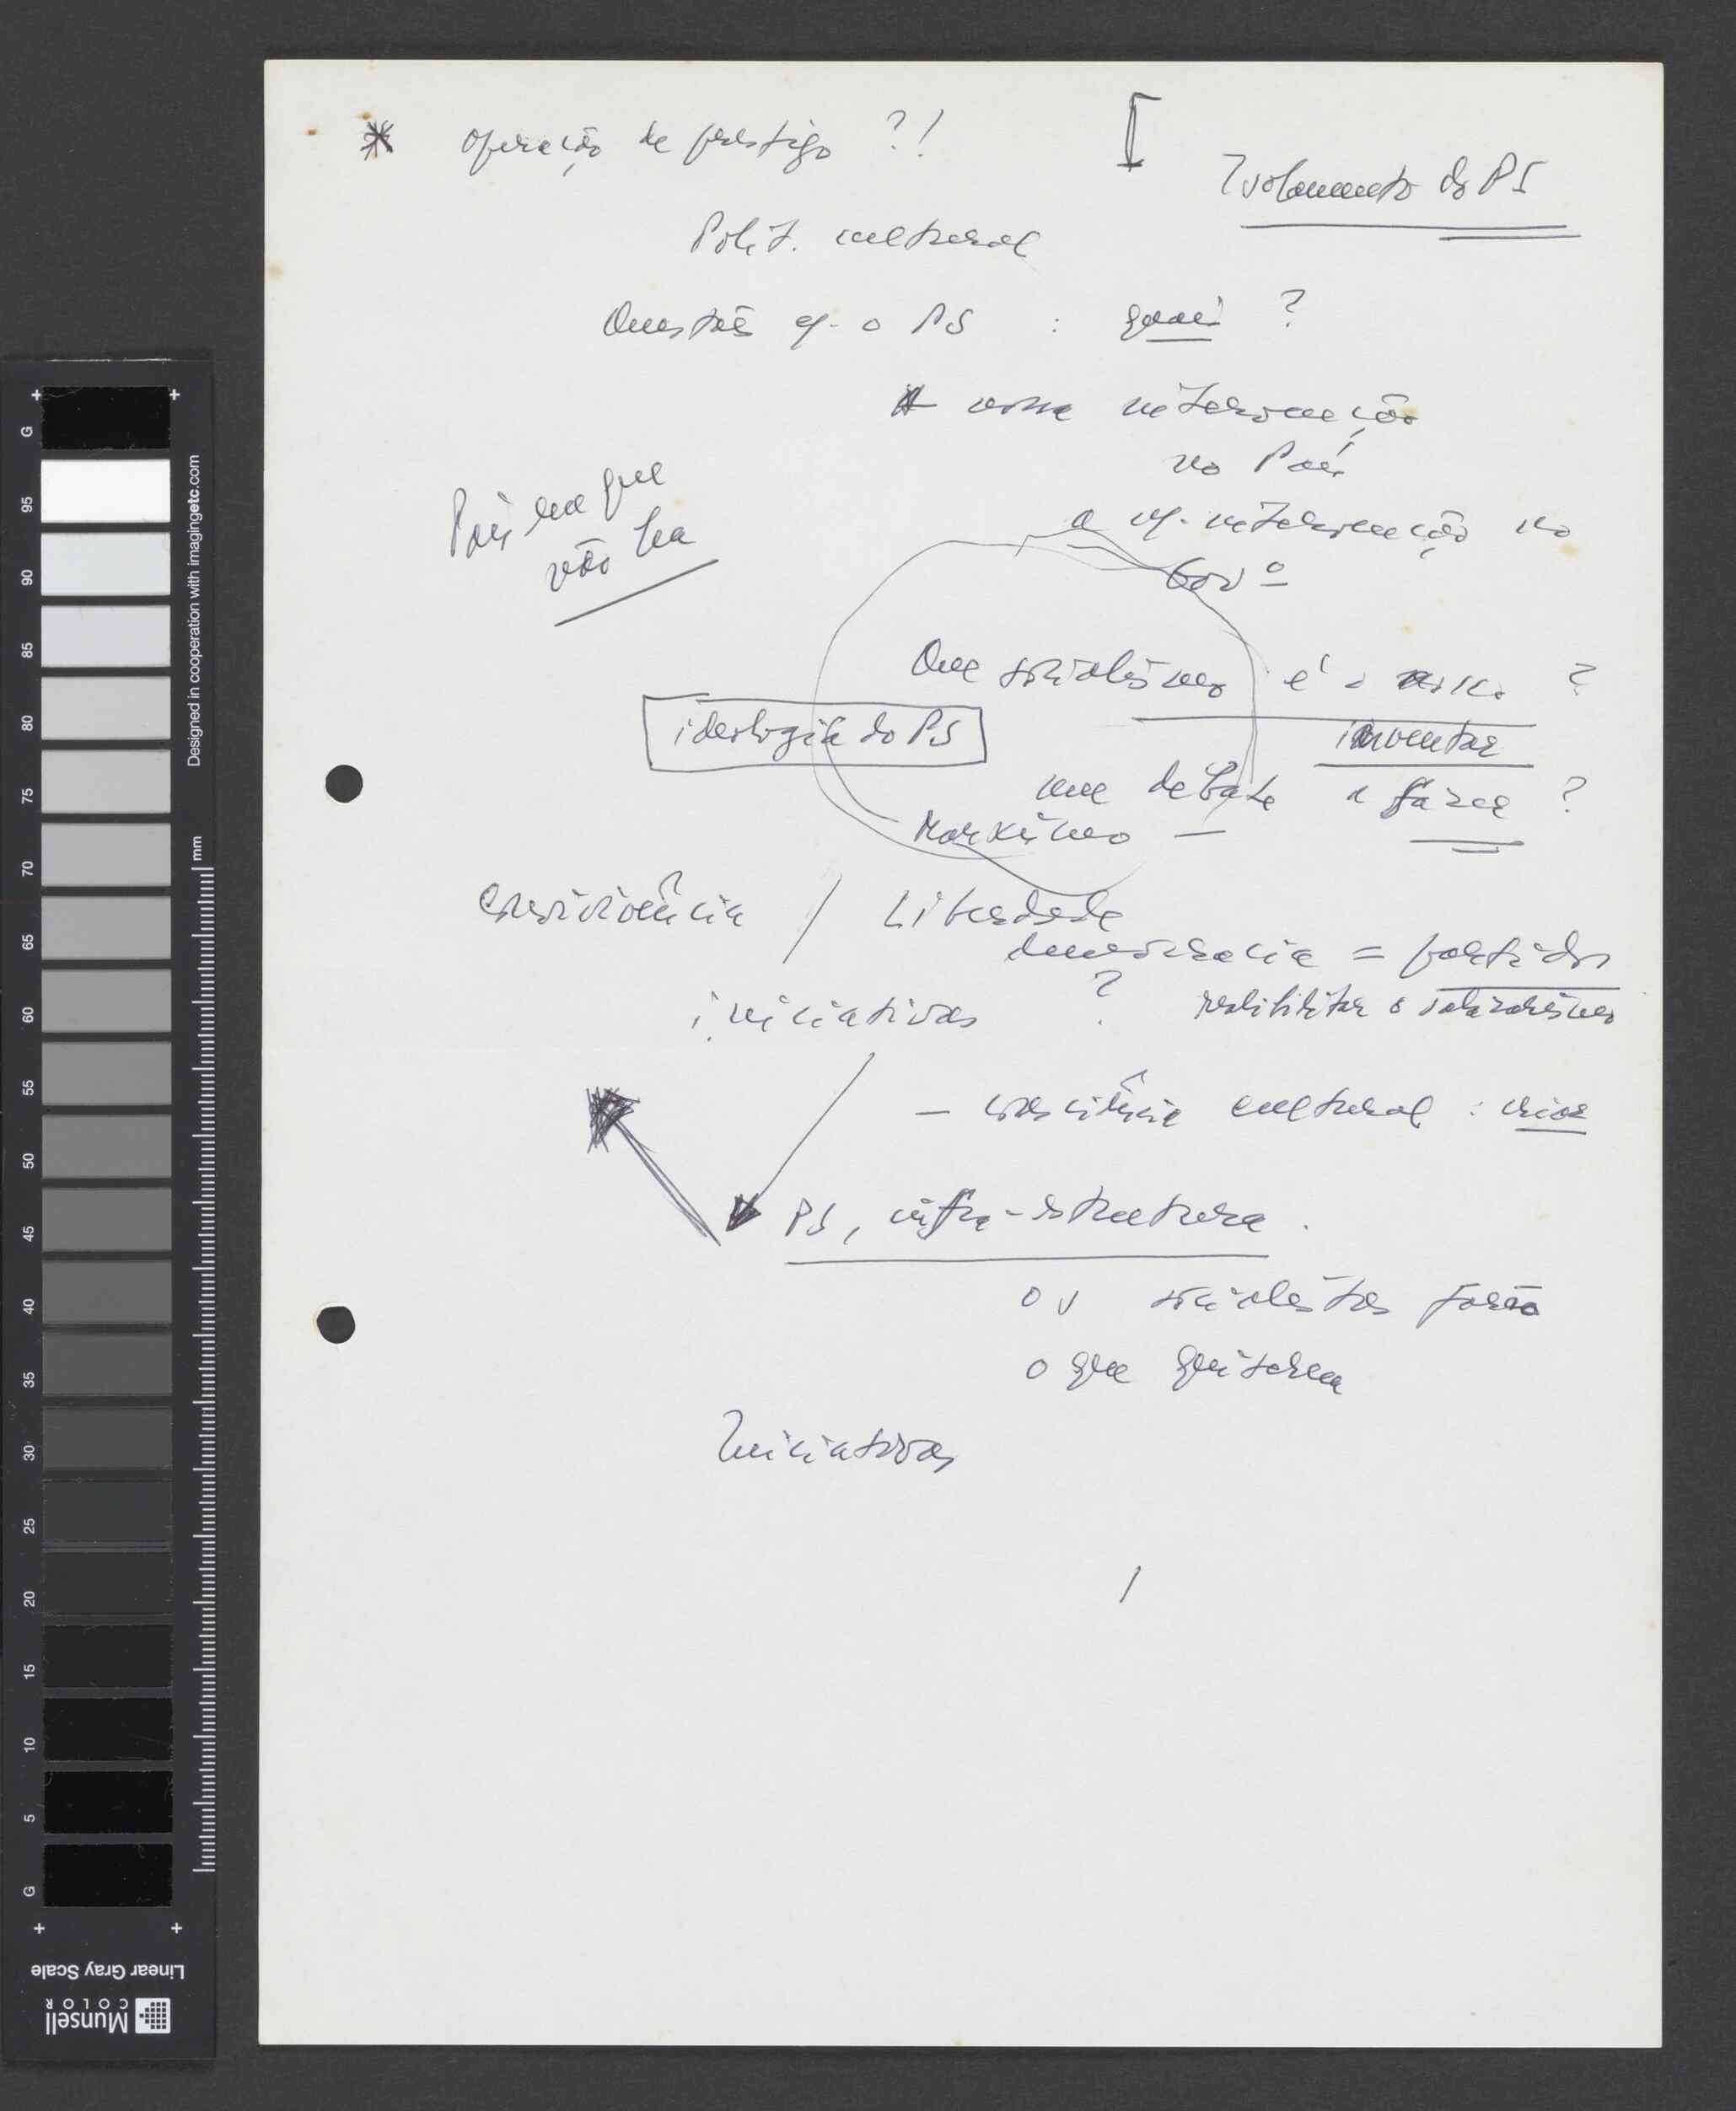 * operação de prestigo ?!
Isolamento do PS
Polit. cultural
Questões q. o PS : quais ?
intervenção
no País
País em que
não há
a intervenção no
Gov.º
Que socialismo é o ?
ideologia do PS
inventar
que debate a fazer ?
Marxismo —
convivência / Liberdade
democracia = partidos
iniciativas ?
reabilitar o salazarismo
— consciência cultural : criar
PS, infra-estrutura .
os socialistas farão
o que quiserem
Iniciativas
/
G
95
90
85
80
75
70
65
60
55
50
45
40
35
30
25
20
15
10
5
G
Designed in cooperation with imagingetc.com
mm
Linear Gray Scale
Munsell
COLOR